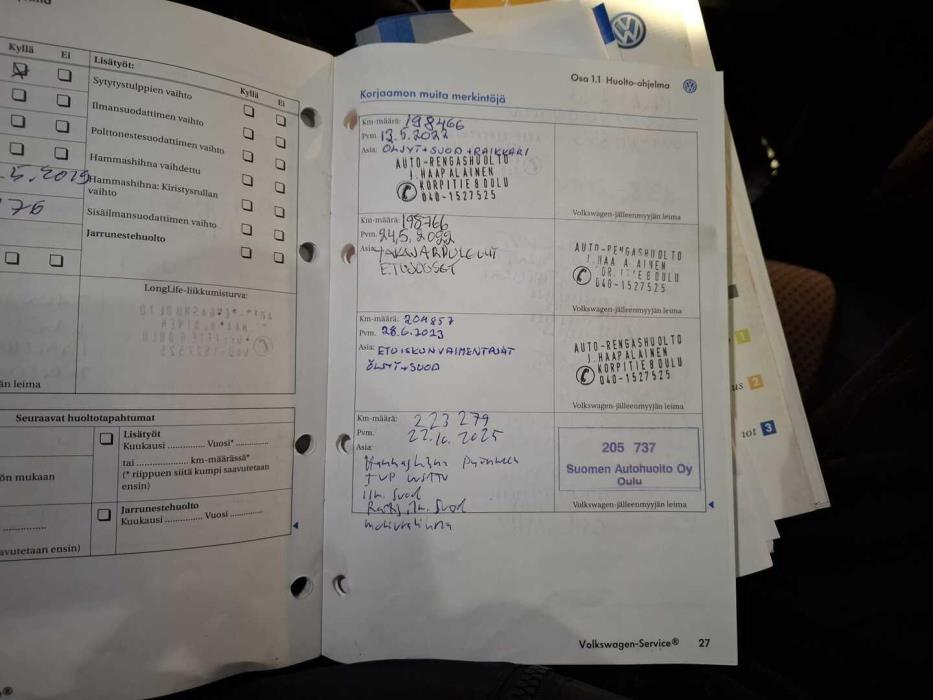 Kyllä Ei
Lisätyöt:
Kyllä Ei
Sytytystulppien vaihto
Ilmansuodattimen vaihto
Polttonestesuodattimen vaihto
Hammashihna vaihdettu
.5.2019
Hammashihna: Kiristysrullan
vaihto
Sisäilmansuodattimen vaihto
Jarrunestehuolto
LongLife-liikkumisturva:
än leima
Seuraavat huoltotapahtumat
Lisätyöt
Kuukausi ............ Vuosi* ............
tai ............ km-määrässä*
(* riippuen siitä kumpi saavutetaan
ensin)
ön mukaan
Jarrunestehuolto
Kuukausi ............ Vuosi ............
avutetaan ensin)
Osa 1.1 Huolto-ohjelma
Korjaamon muita merkintöjä
Km-määrä: 198466
Pvm. 13.5.2022
Asia: ÖLJYT+SUOD+RAIKKARI
AUTO-RENGASHUOLTO
J.HAAPALAINEN
KORPITIE 8 OULU
040-1527525
Volkswagen-jälleenmyyjän leima
Km-määrä: 198766
Pvm. 24.5.2022
Asia:
ETUJOUSET
AUTO-RENGASHUOLTO
040-1527525
Volkswagen-jälleenmyyjän leima
Km-määrä: 204857
Pvm. 28.6.2023
Asia: ETUISKUNVAIMENTAJAT
ÖLJYT+SUOD
AUTO-RENGASHUOLTO
J.HAAPALAINEN
KORPITIE 8 OULU
040-1527525
Volkswagen-jälleenmyyjän leima
Km-määrä: 223 279
Pvm. 22.10.2025
Asia:
Hammashihna
ilm. suod
205 737
Suomen Autohuolto Oy
Oulu
Volkswagen-jälleenmyyjän leima
Volkswagen-Service® 27
1
2
3